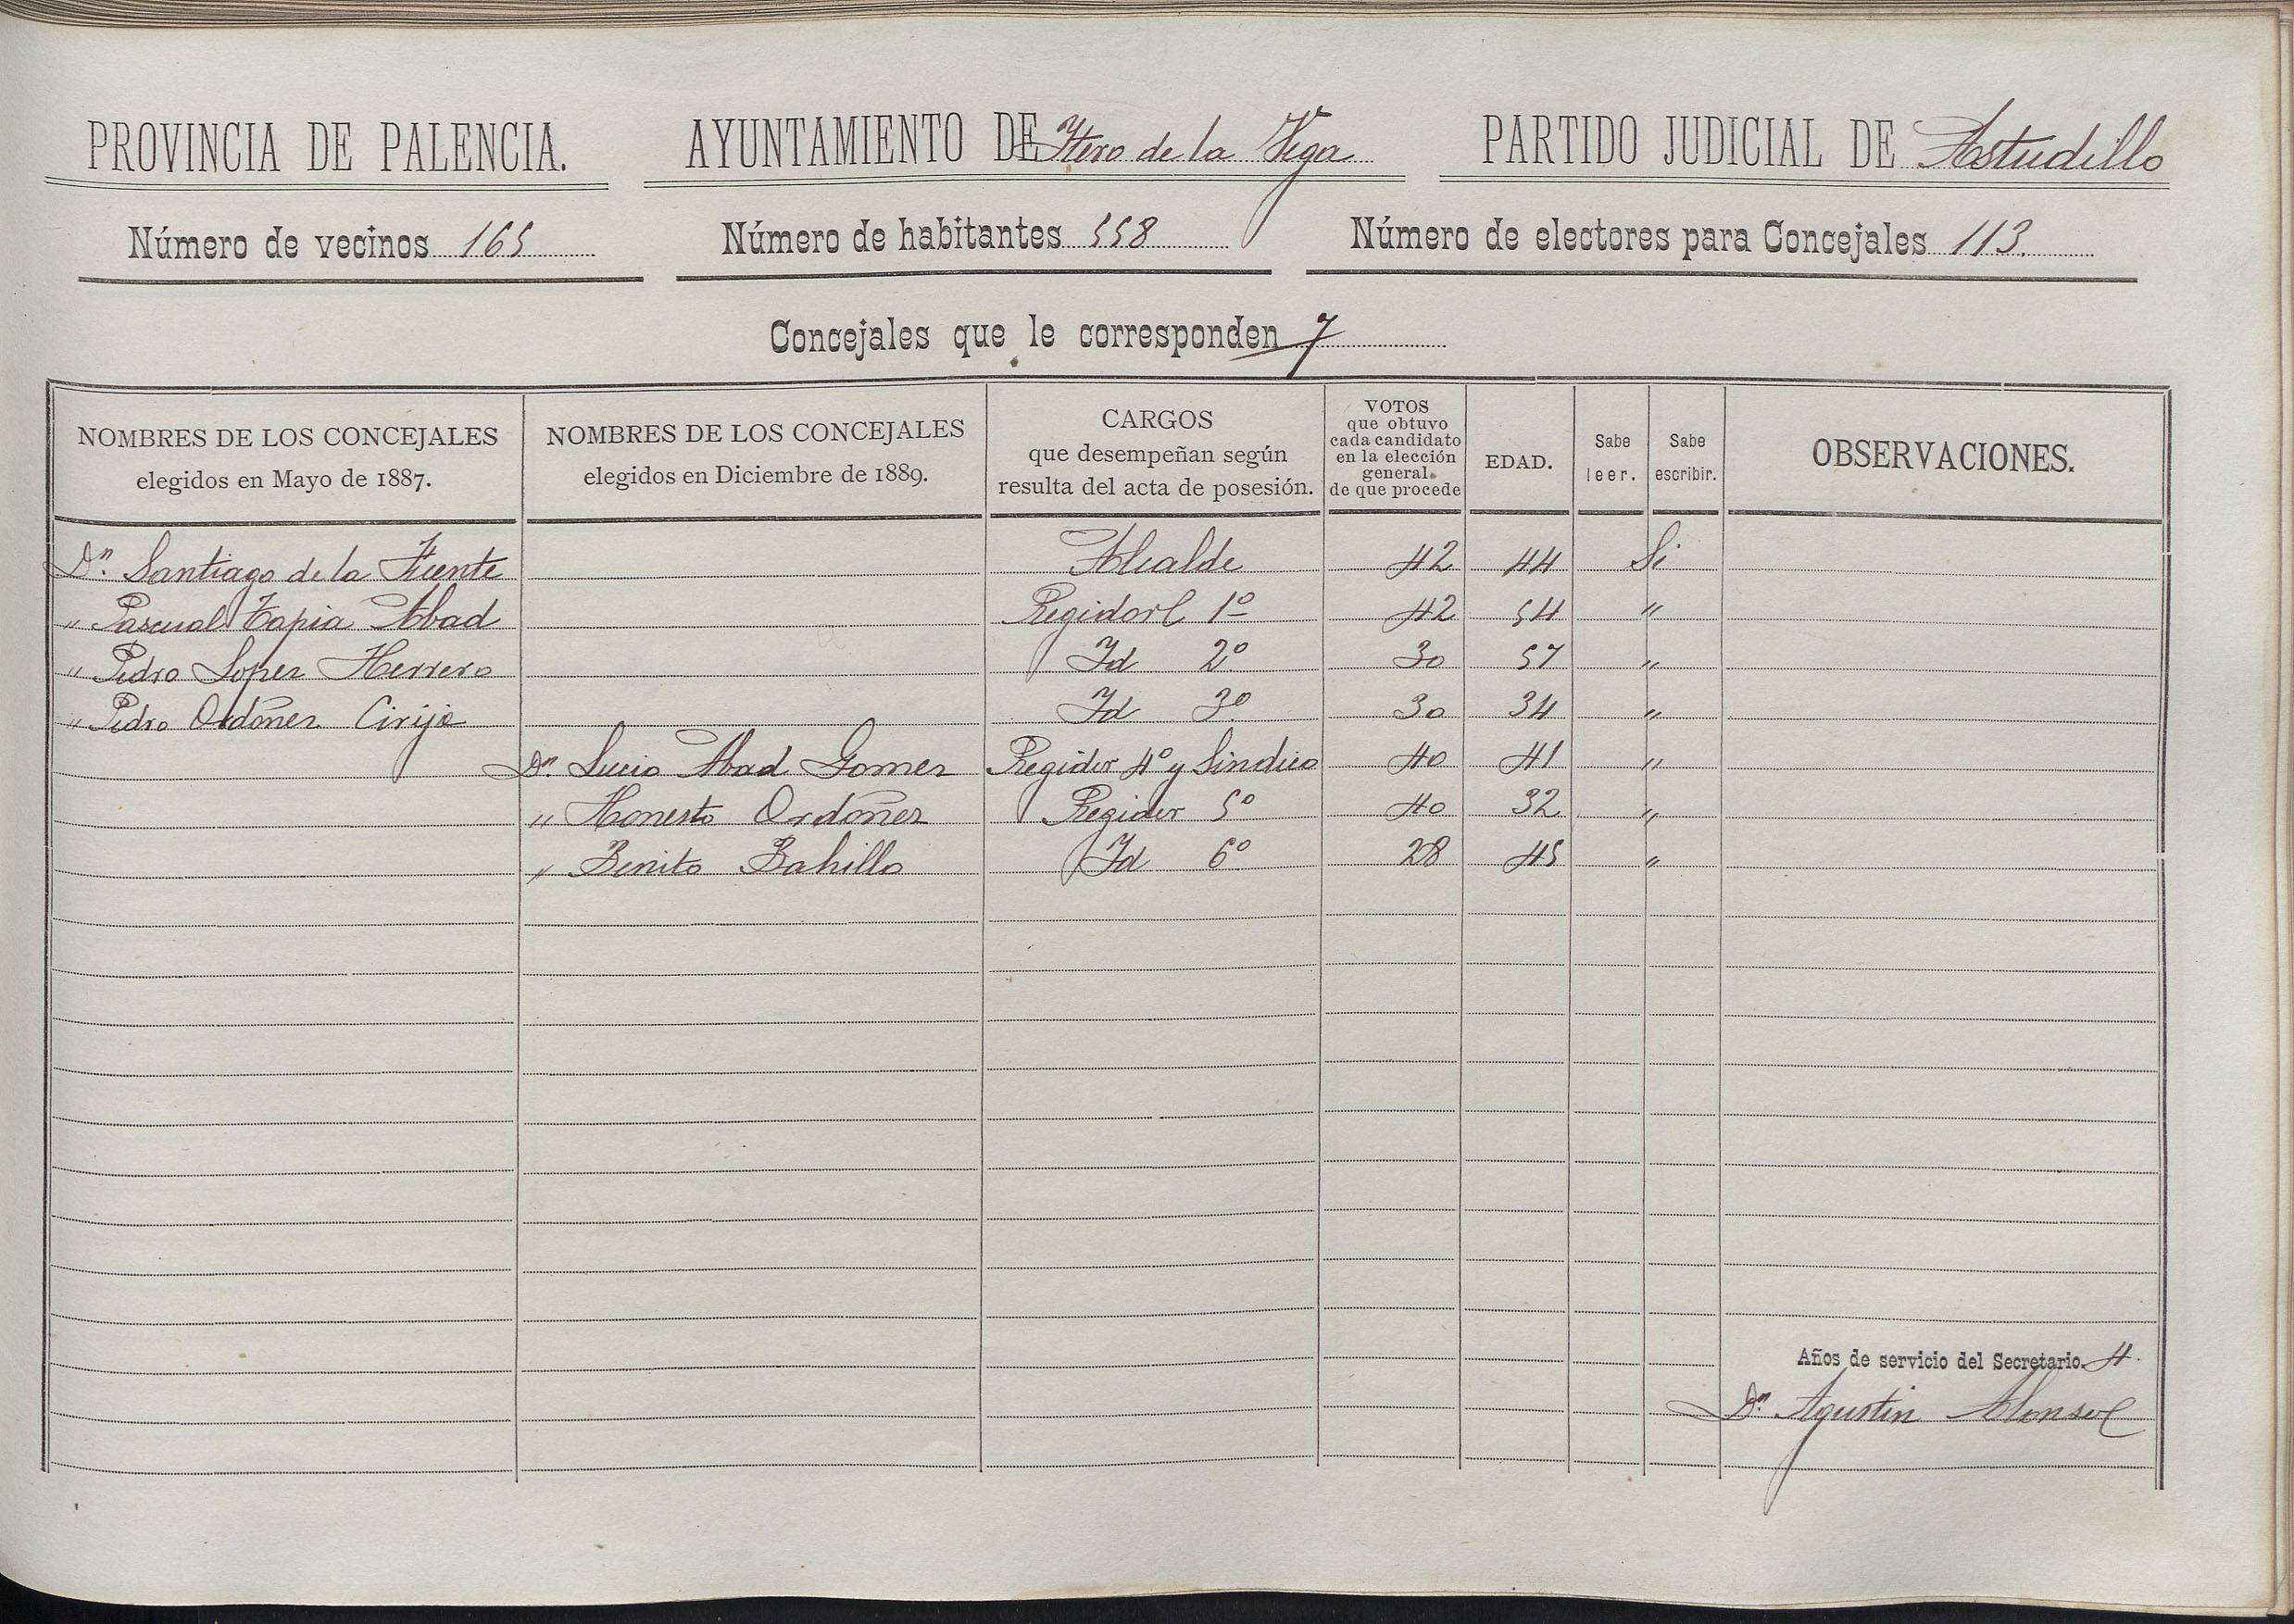 PROVINCIA DE PALENCIA. AYUNTAMIENTO DE Itero de la Vega PARTIDO JUDICIAL DE Astudillo
Número de vecinos 165 Número de habitantes 558 Número de electores para Concejales 113.
Concejales que le corresponden 7
NOMBRES DE LOS CONCEJALES
elegidos en Mayo de 1887.
NOMBRES DE LOS CONCEJALES
elegidos en Diciembre de 1889.
CARGOS
que desempeñan según
resulta del acta de posesión.
VOTOS
que obtuvo
cada candidato
en la elección
general
de que procede
EDAD.
Sabe
leer.
Sabe
escribir.
OBSERVACIONES.
Dn. Santiago de la Fuente Alcalde 42 44 Si
" Pascual Tapia Abad Regidor 1º 42 54 "
" Pedro Lopez Herrero Id 2º 30 57 "
" Pedro Ordoñez Cirijo Id 3º 30 34 "
Dn. Lucio Abad Gomez Regidor 4º y Sindico 40 41 "
" Honesto Ordoñez Regidor 5º 40 32 "
" Benito Bahillo Id 6º 28 45 "
Años de servicio del Secretario. 4.
Dn. Agustin Alonso